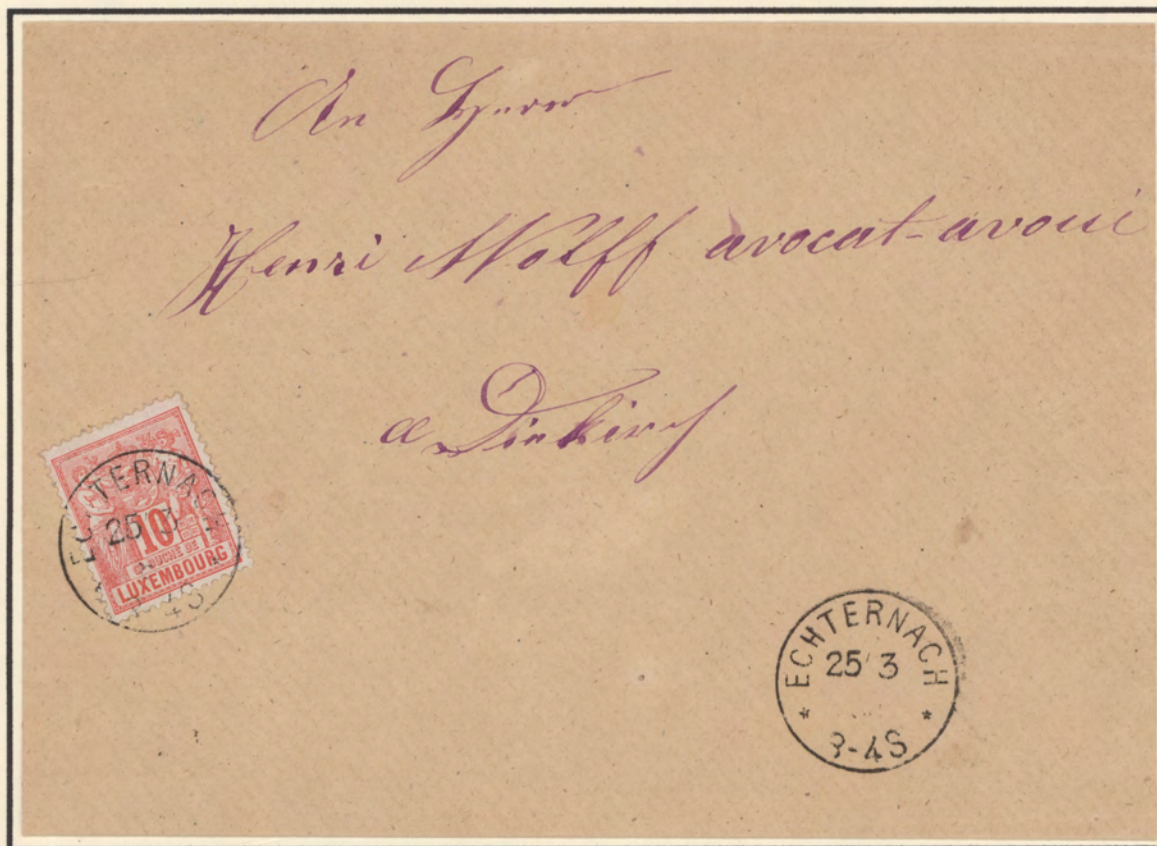 An Herrn
Henri Wolff avocat-avoué
a Diekirch
ECHTERNACH
25 3
10
G. DUCHÉ DE
LUXEMBOURG
4S
ECHTERNACH
25 3
3-4S